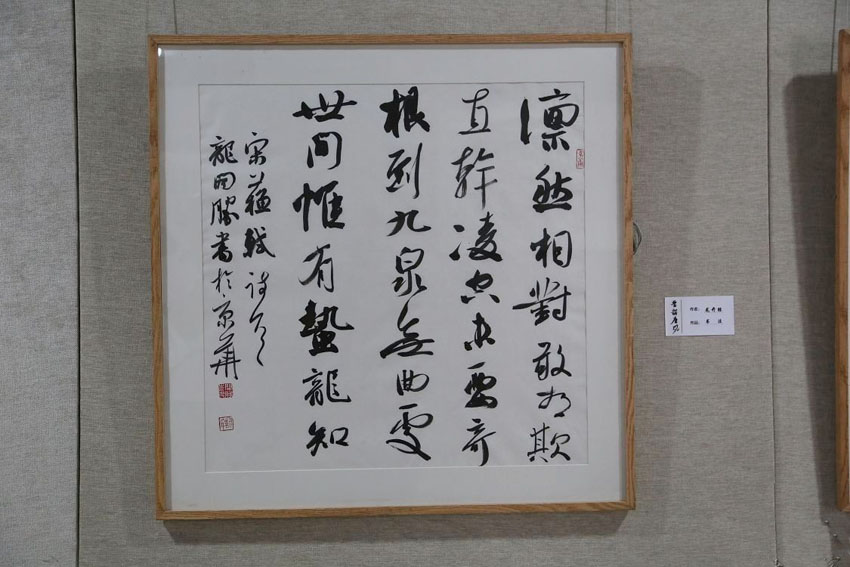 凜然相對敢相欺
直幹凌空未要奇
根到九泉無曲處
世間惟有蟄龍知
宋蘇軾詩
龍開勝書於京華
作者: 龙开胜
作品: 书法